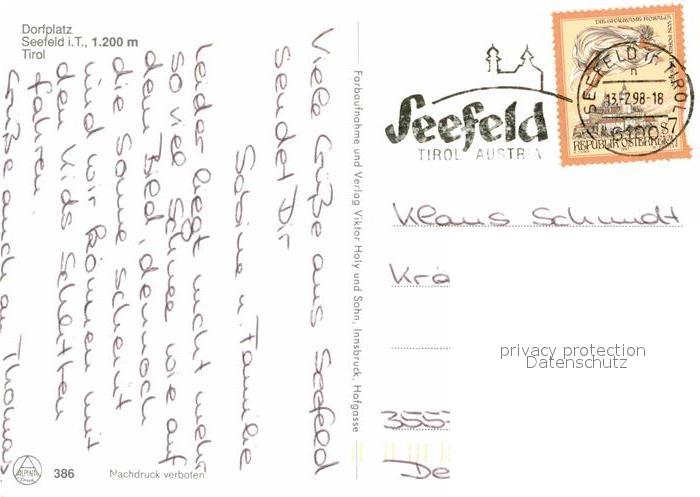 Dorfplatz
Seefeld i.T., 1.200 m
Tirol
Viele Grüße aus Seefeld
Sendet Dir
Sabine u. Familie
Leider liegt nicht mehr
so viel Schnee wie auf
dem Bild, dennoch
die Sonne scheint
und wir können mit
den Kids Schlitten
fahren.
Grüße auch an Thomas
386
Nachdruck verboten
Farbaufnahme und Verlag Viktor Holy und Sohn, Innsbruck, Hofgasse
Seefeld
TIROL AUSTRIA
SEEFELD in TIROL
13.-2.98-18
6100
REPUBLIK ÖSTERREICH
Klaus Schmidt
Krä
privacy protection
Datenschutz
3557
De